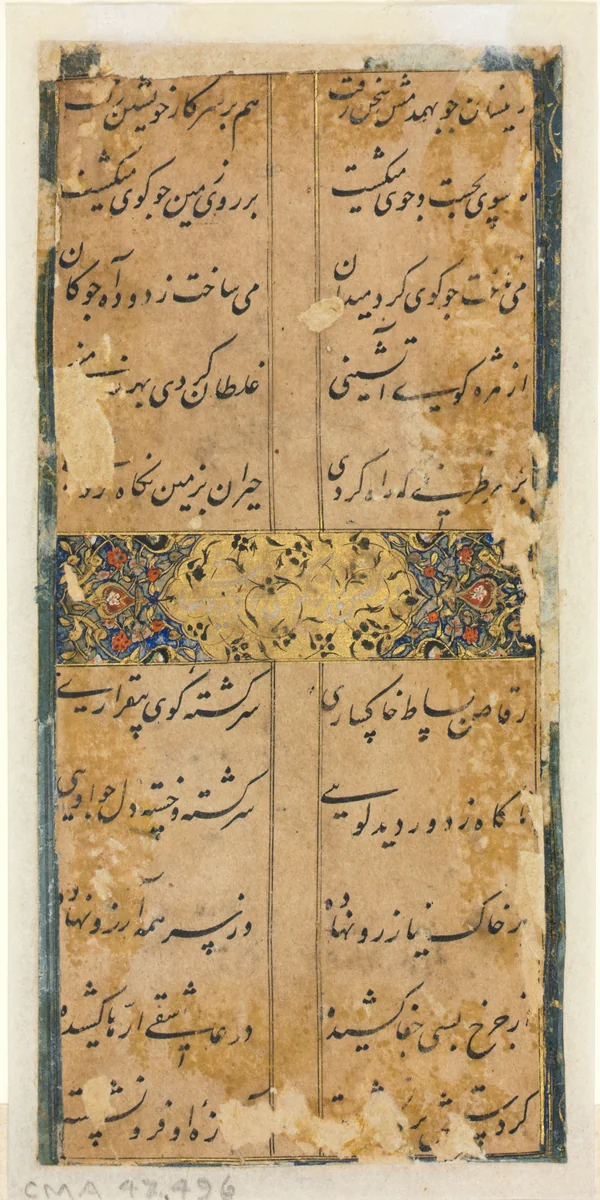 زینسان چو بهمدمش سخن رفت هم بر سر کار خویشتن رفت
سوی بجست و جوی میکشت بر روی زمین چو کوی میکشت
می تاخت چو کوی کرد میدان می ساخت ز دود آه چوکان
از مژه کویی آتشینی غلطان کردی بهر زمینی
بر هر طرفی که راه کردی حیران بزمین نکاه کردی
رقاص بساط خاکساری سرکشته کوی بیقراری
ناکاه ز دور دید کویی سرکشته و خسته دل چو اویی
بر خاک نیاز رو نهاده وز سر همه آرزو نهاده
از چرخ بسی جفا کشیده در عاشقی ارها کشیده
او فرو نشسته
CMA 47.496